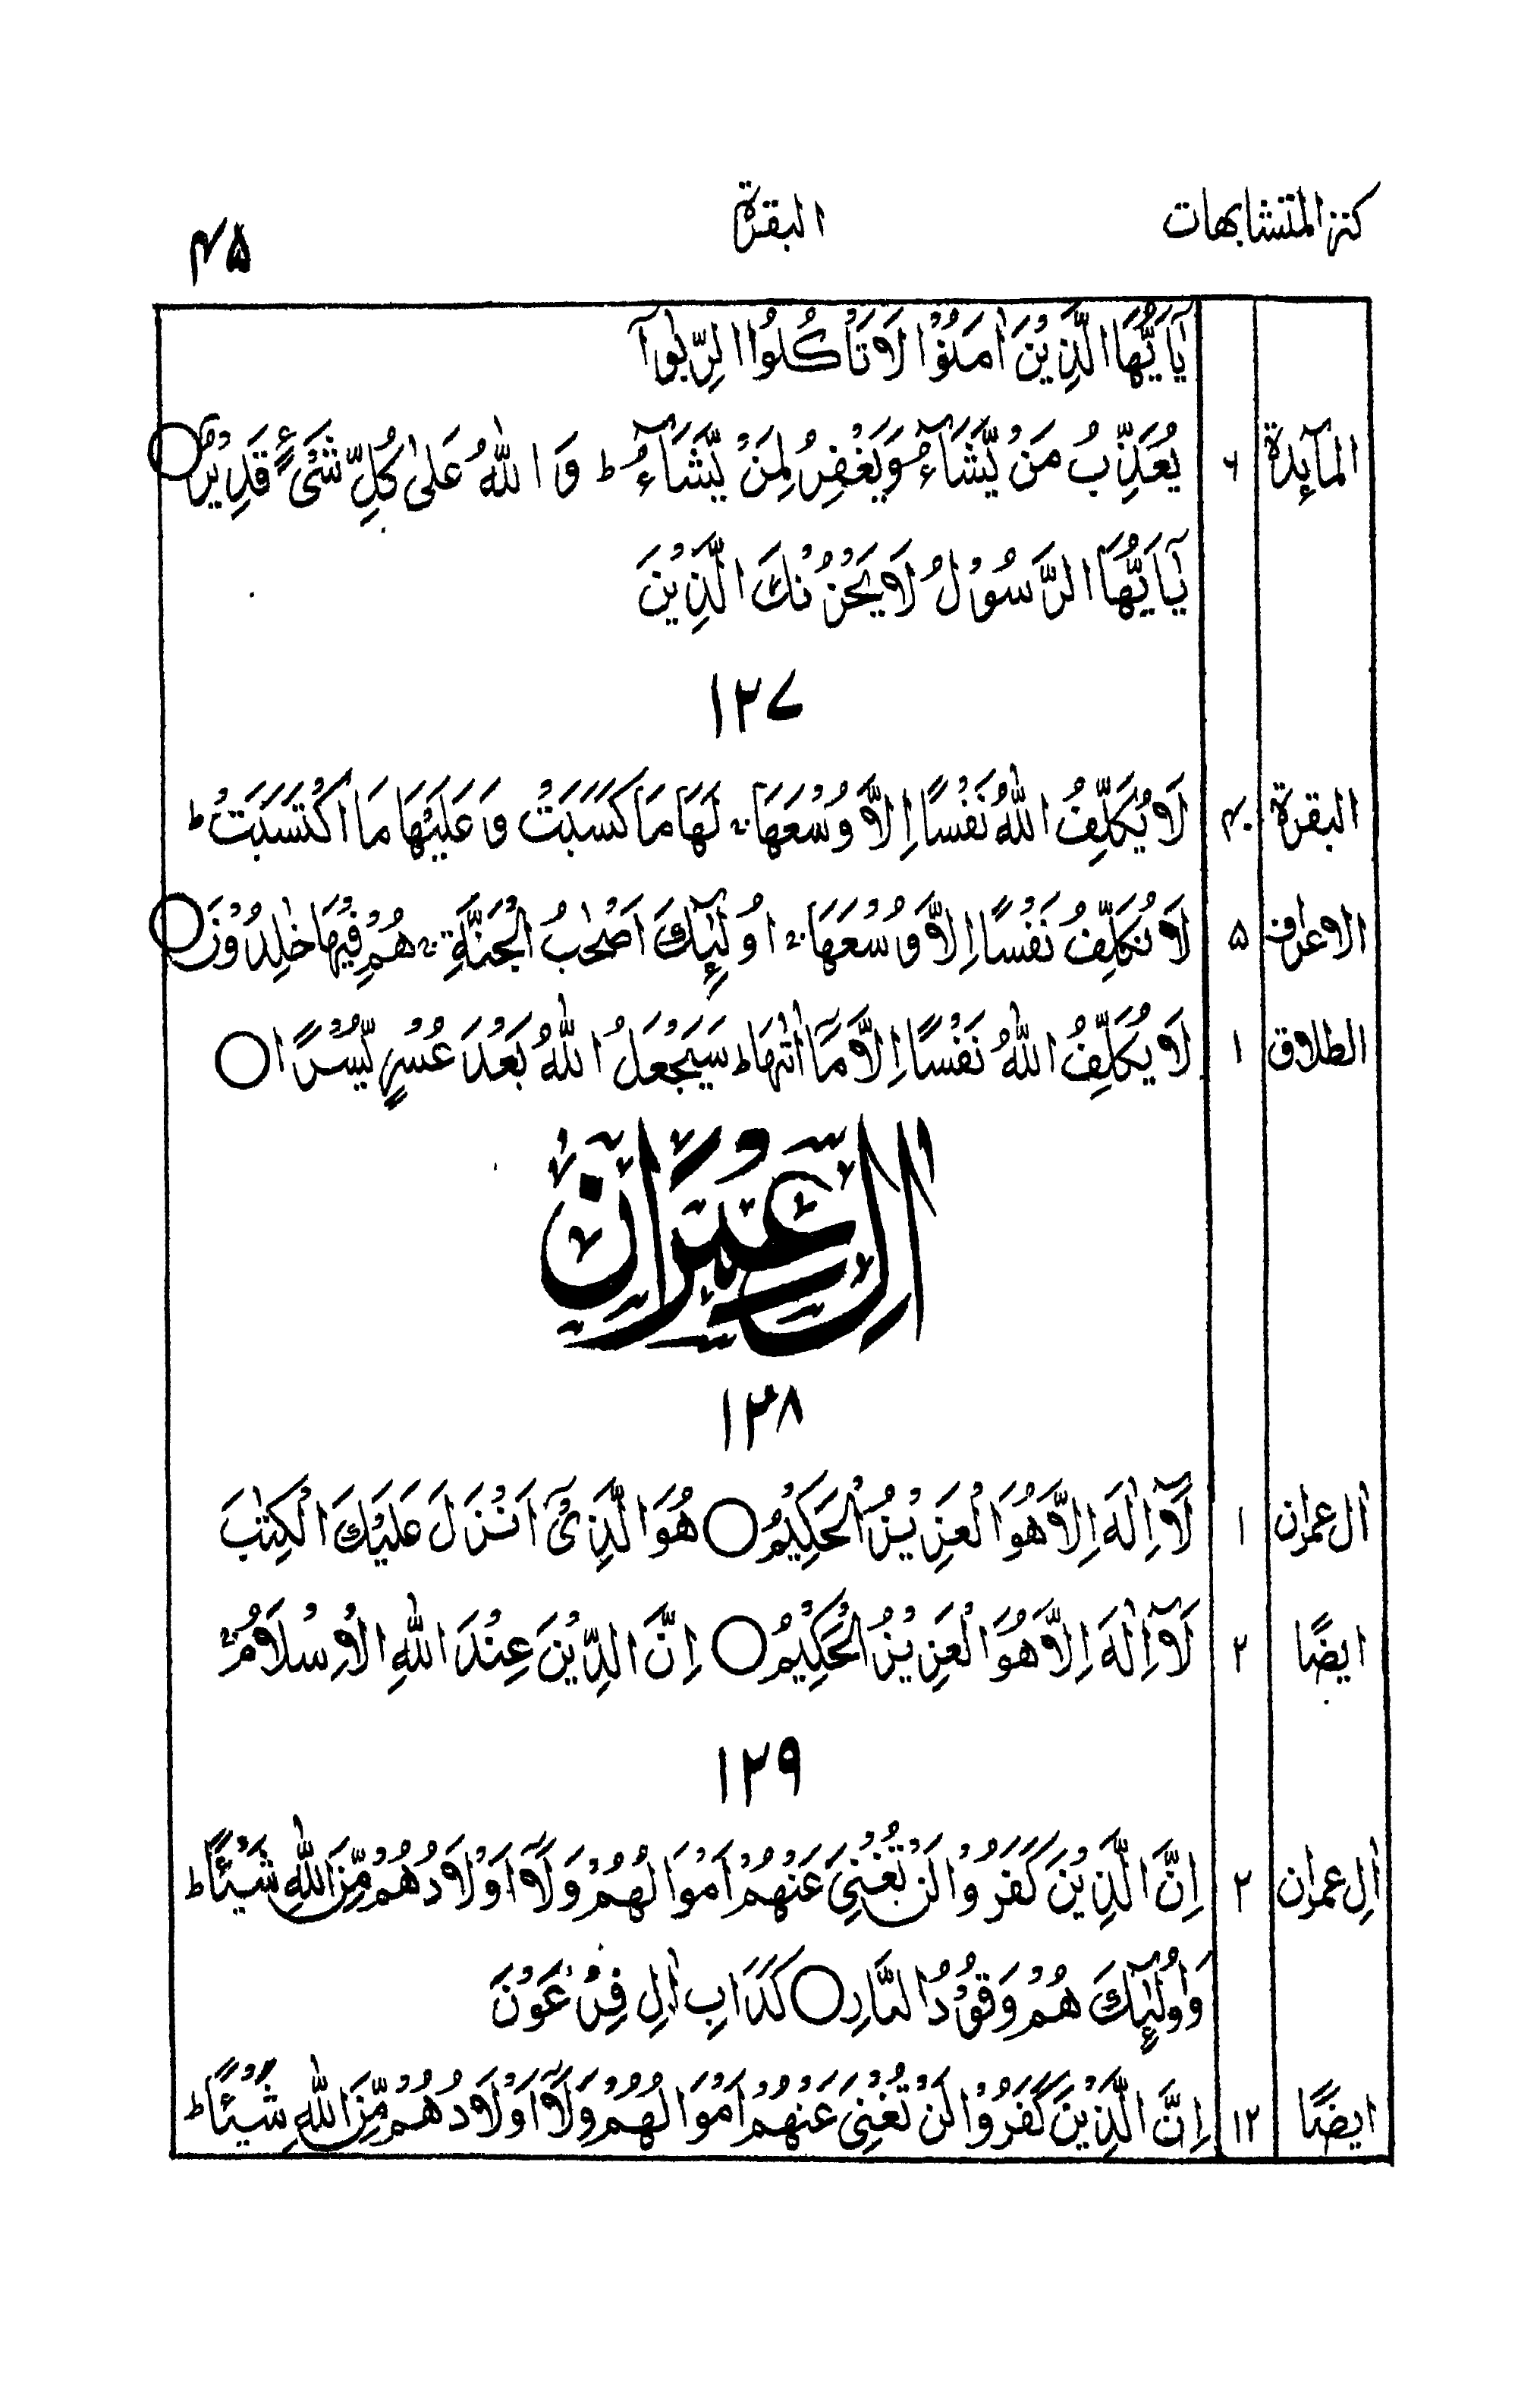 كنز المتشابهات البقرة ۴۵
يٰۤاَيُّهَا الَّذِيْنَ اٰمَنُوْا لَا تَاْكُلُوا الرِّبٰوٓا
المآئدة ۶ يُعَذِّبُ مَنْ يَّشَآءُ وَيَغْفِرُ لِمَنْ يَّشَآءُ ؕ وَ اللّٰهُ عَلٰى كُلِّ شَىْءٍ قَدِيْرٌ ○
يٰۤاَيُّهَا الرَّسُوْلُ لَا يَحْزُنْكَ الَّذِيْنَ
۱۲۷
البقرة ۴۰ لَا يُكَلِّفُ اللّٰهُ نَفْسًا اِلَّا وُسْعَهَا ؕ لَهَا مَا كَسَبَتْ وَ عَلَيْهَا مَا اكْتَسَبَتْ ؕ
الاعراف ۵ لَا نُكَلِّفُ نَفْسًا اِلَّا وُسْعَهَا ؗ اُولٰٓئِكَ اَصْحٰبُ الْجَنَّةِ ۚ هُمْ فِيْهَا خٰلِدُوْنَ ○
الطلاق ۱ لَا يُكَلِّفُ اللّٰهُ نَفْسًا اِلَّا مَاۤ اٰتٰىهَا ؕ سَيَجْعَلُ اللّٰهُ بَعْدَ عُسْرٍ يُّسْرًا ○
اٰل عِمْرَان
۱۲۸
اٰل عمران ۱ لَاۤ اِلٰهَ اِلَّا هُوَ الْعَزِيْزُ الْحَكِيْمُ ○ هُوَ الَّذِىْۤ اَنْزَلَ عَلَيْكَ الْكِتٰبَ
ايضًا ۲ لَاۤ اِلٰهَ اِلَّا هُوَ الْعَزِيْزُ الْحَكِيْمُ ○ اِنَّ الدِّيْنَ عِنْدَ اللّٰهِ الْاِسْلَامُ ۫
۱۲۹
اٰلِ عمران ۲ اِنَّ الَّذِيْنَ كَفَرُوْا لَنْ تُغْنِىَ عَنْهُمْ اَمْوَالُهُمْ وَلَاۤ اَوْلَادُهُمْ مِّنَ اللّٰهِ شَيْئًا ؕ
وَاُولٰٓئِكَ هُمْ وَقُوْدُ النَّارِ ○ كَدَاْبِ اٰلِ فِرْعَوْنَ
ايضًا ۱۲ اِنَّ الَّذِيْنَ كَفَرُوْا لَنْ تُغْنِىَ عَنْهُمْ اَمْوَالُهُمْ وَلَاۤ اَوْلَادُهُمْ مِّنَ اللّٰهِ شَيْئًا ؕ